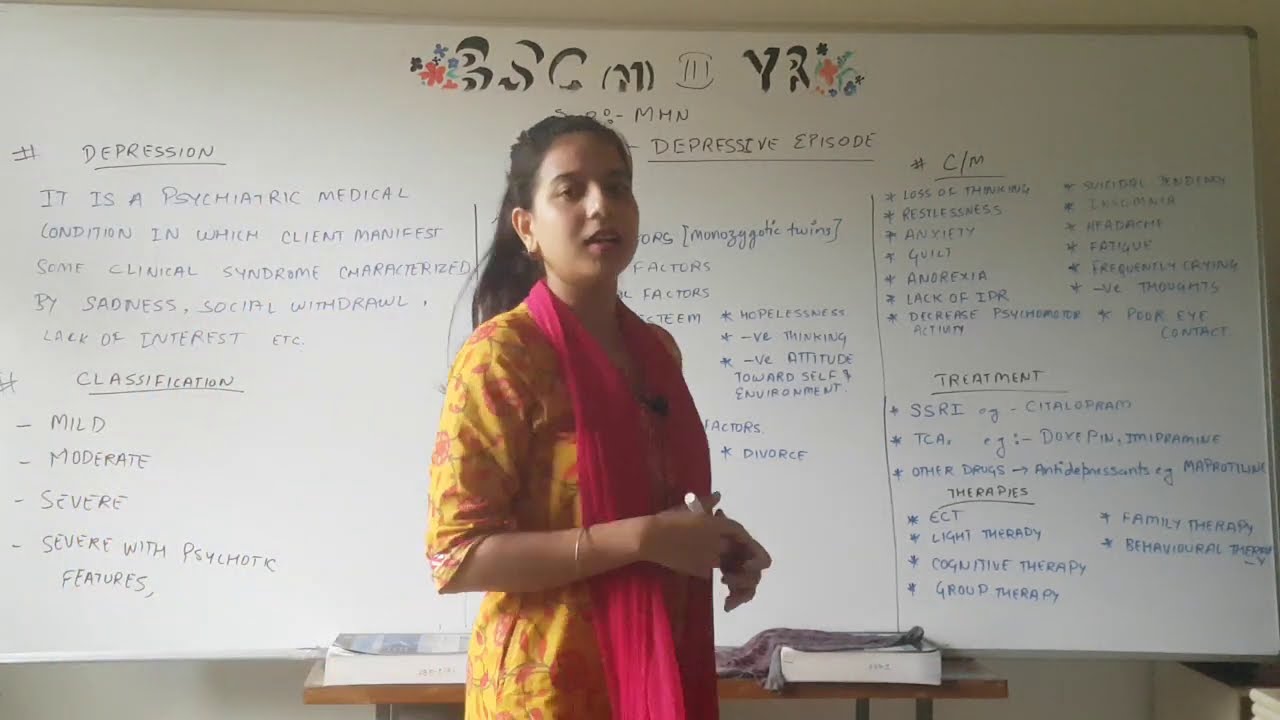 BSC (N) III YR
:- MHN
- DEPRESSIVE EPISODE
# DEPRESSION
IT IS A PSYCHIATRIC MEDICAL
CONDITION IN WHICH CLIENT MANIFEST
SOME CLINICAL SYNDROME CHARACTERIZED
BY SADNESS, SOCIAL WITHDRAWL,
LACK OF INTEREST ETC.
# CLASSIFICATION
- MILD
- MODERATE
- SEVERE
- SEVERE WITH PSYCHOTIC
FEATURES,
[monozygotic twins]
FACTORS
FACTORS
* HOPELESSNESS
* -VE THINKING
* -VE ATTITUDE
TOWARD SELF &
ENVIRONMENT.
FACTORS.
* DIVORCE
# C/M
* LOSS OF THINKING
* RESTLESSNESS
* ANXIETY
* GUILT
* ANOREXIA
* LACK OF IPR
* DECREASE PSYCHOMOTOR
ACTIVITY
* SUICIDAL TENDENCY
* INSOMNIA
* HEADACHE
* FATIGUE
* FREQUENTLY CRYING
* -VE THOUGHTS
* POOR EYE
CONTACT.
TREATMENT
* SSRI eg - CITALOPRAM
* TCA, eg :- DOXEPIN, IMIPRAMINE
* OTHER DRUGS → Antidepressants eg MAPROTILINE
THERAPIES
* ECT
* LIGHT THERAPY
* COGNITIVE THERAPY
* GROUP THERAPY
* FAMILY THERAPY
* BEHAVIOURAL THERAPY